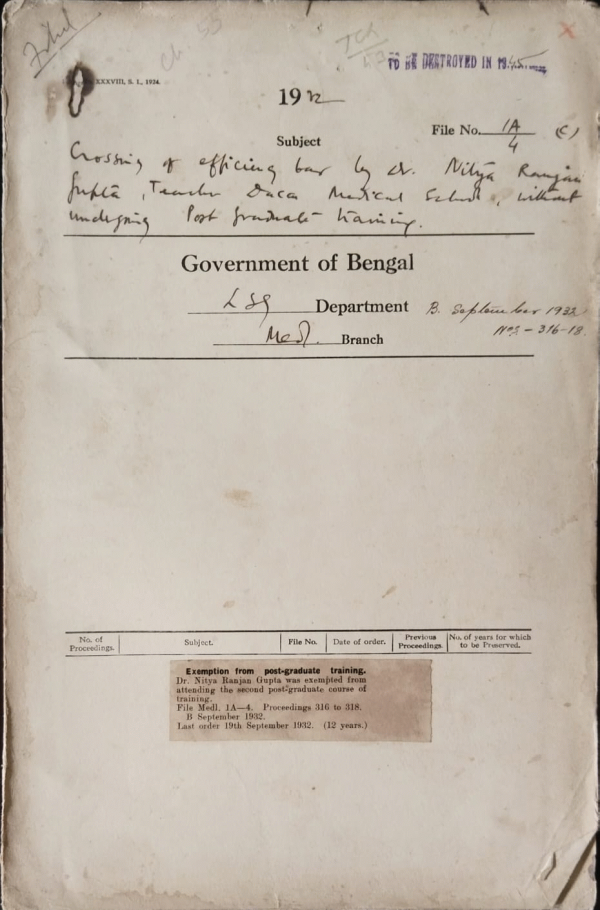 XXXVIII, S. I., 1924.
TO BE DESTROYED IN 1945
1932
File No. 1A/4 (C)
Subject
Crossing of efficiency bar by Dr. Nitya Ranjan
Gupta, Teacher Dacca Medical School, without
undergoing Post graduate training.
Government of Bengal
LSG Department B. September 1932
Medl. Branch Nos - 316-18.
No. of Proceedings. Subject. File No. Date of order. Previous Proceedings. No. of years for which to be Preserved.
Exemption from post-graduate training.
Dr. Nitya Ranjan Gupta was exempted from
attending the second post-graduate course of
training.
File Medl. 1A—4. Proceedings 316 to 318.
B September 1932.
Last order 19th September 1932. (12 years.)